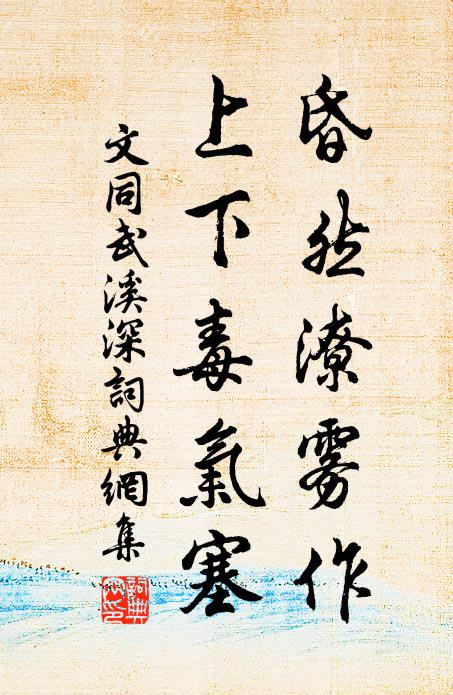 昏然潦雾作
上下毒氣塞
文同武溪深詞典網集